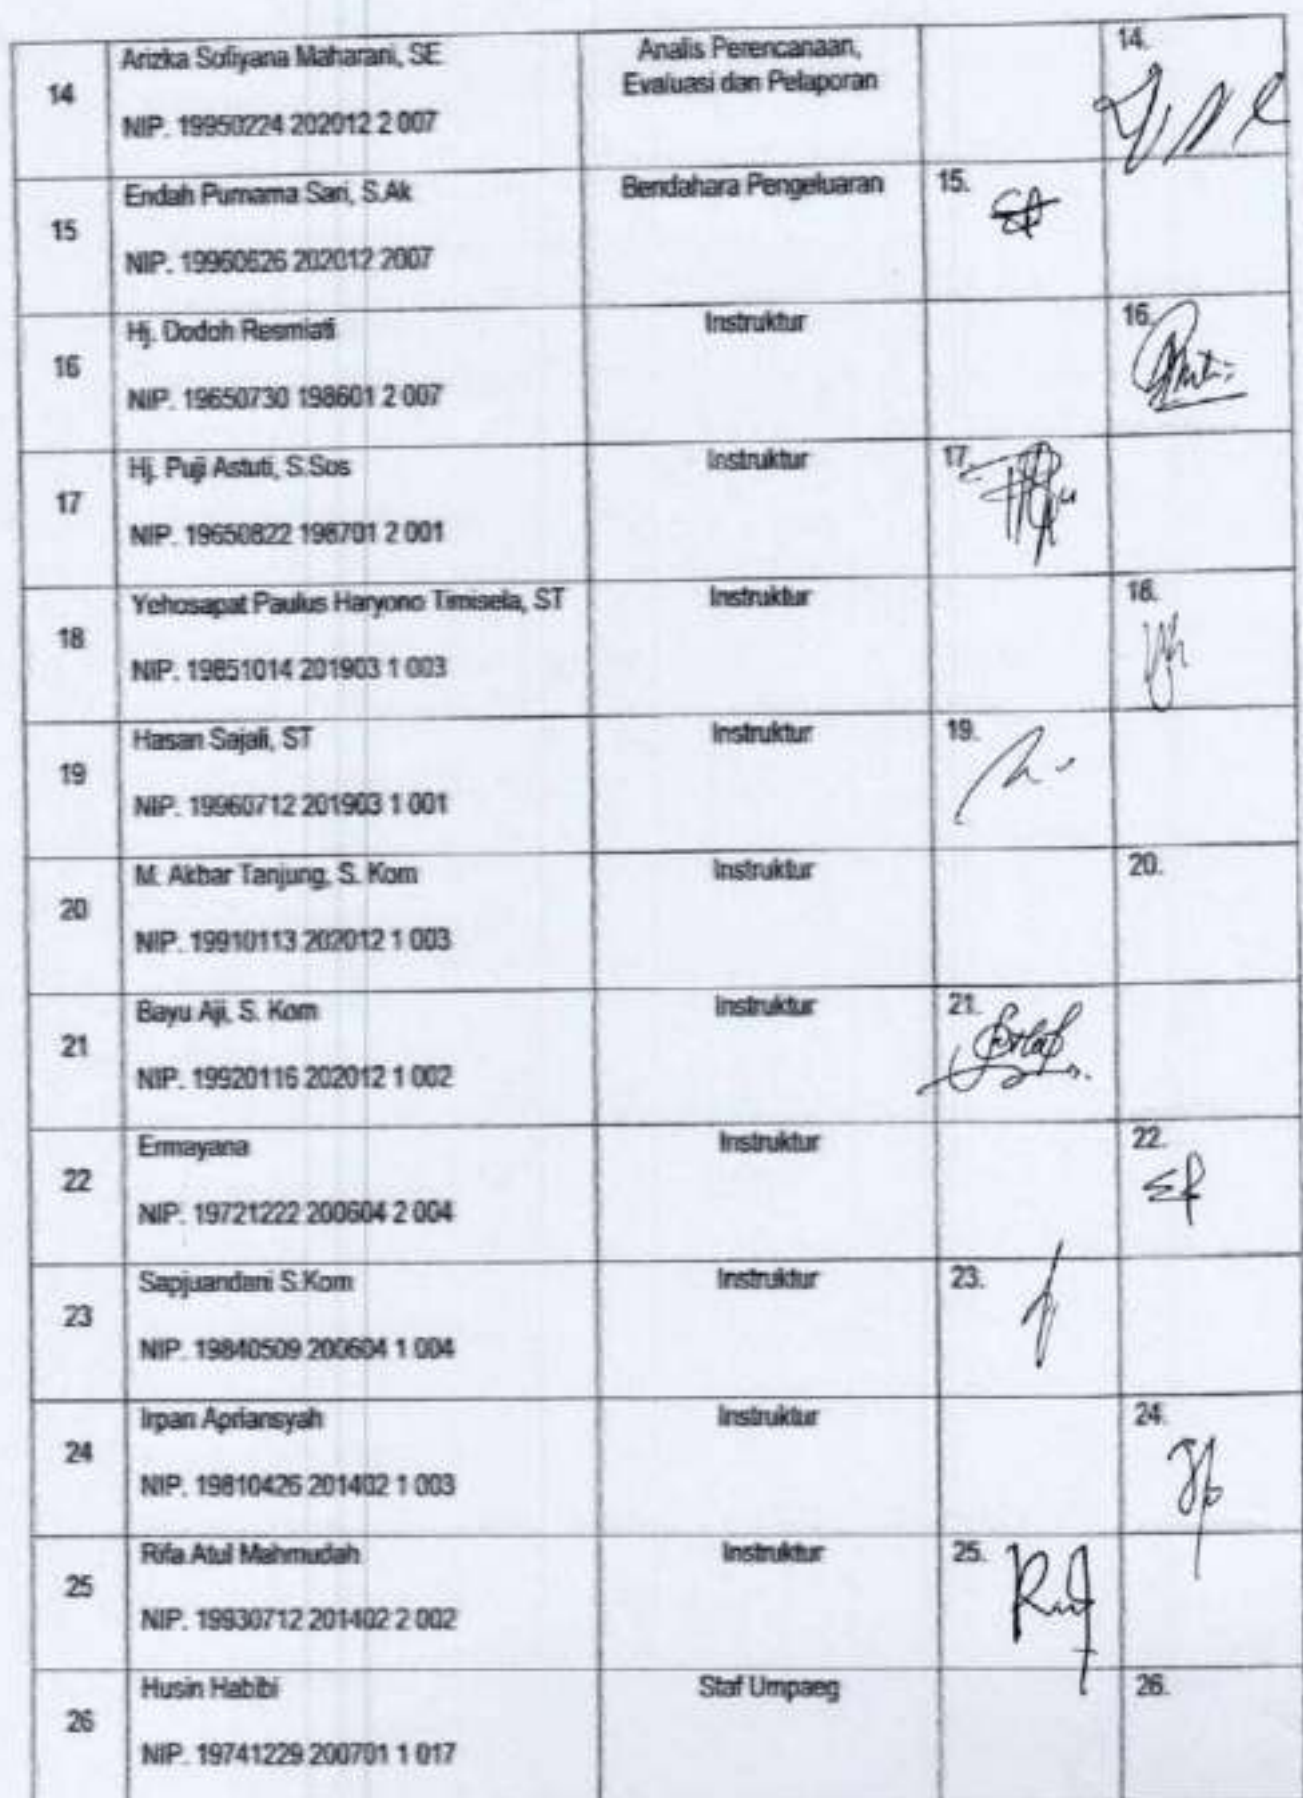 14
Arizka Sofiyana Maharani, SE
NIP. 19950224 202012 2 007
Analis Perencanaan,
Evaluasi dan Pelaporan
14.
15
Endah Purnama Sari, S.Ak
NIP. 19960626 202012 2007
Bendahara Pengeluaran
15.
16
Hj. Dodoh Resmiati
NIP. 19650730 198601 2 007
Instruktur
16.
17
Hj. Puji Astuti, S.Sos
NIP. 19650822 198701 2 001
Instruktur
17.
18
Yehosapat Paulus Haryono Timisela, ST
NIP. 19851014 201903 1 003
Instruktur
18.
19
Hasan Sajali, ST
NIP. 19960712 201903 1 001
Instruktur
19.
20
M. Akbar Tanjung, S. Kom
NIP. 19910113 202012 1 003
Instruktur
20.
21
Bayu Aji, S. Kom
NIP. 19920116 202012 1 002
Instruktur
21.
22
Ermayana
NIP. 19721222 200604 2 004
Instruktur
22.
23
Sapjuandani S.Kom
NIP. 19840509 200604 1 004
Instruktur
23.
24
Irpan Apriansyah
NIP. 19810426 201402 1 003
Instruktur
24.
25
Rifa Atul Mahmudah
NIP. 19930712 201402 2 002
Instruktur
25.
26
Husin Habibi
NIP. 19741229 200701 1 017
Staf Umpaeg
26.